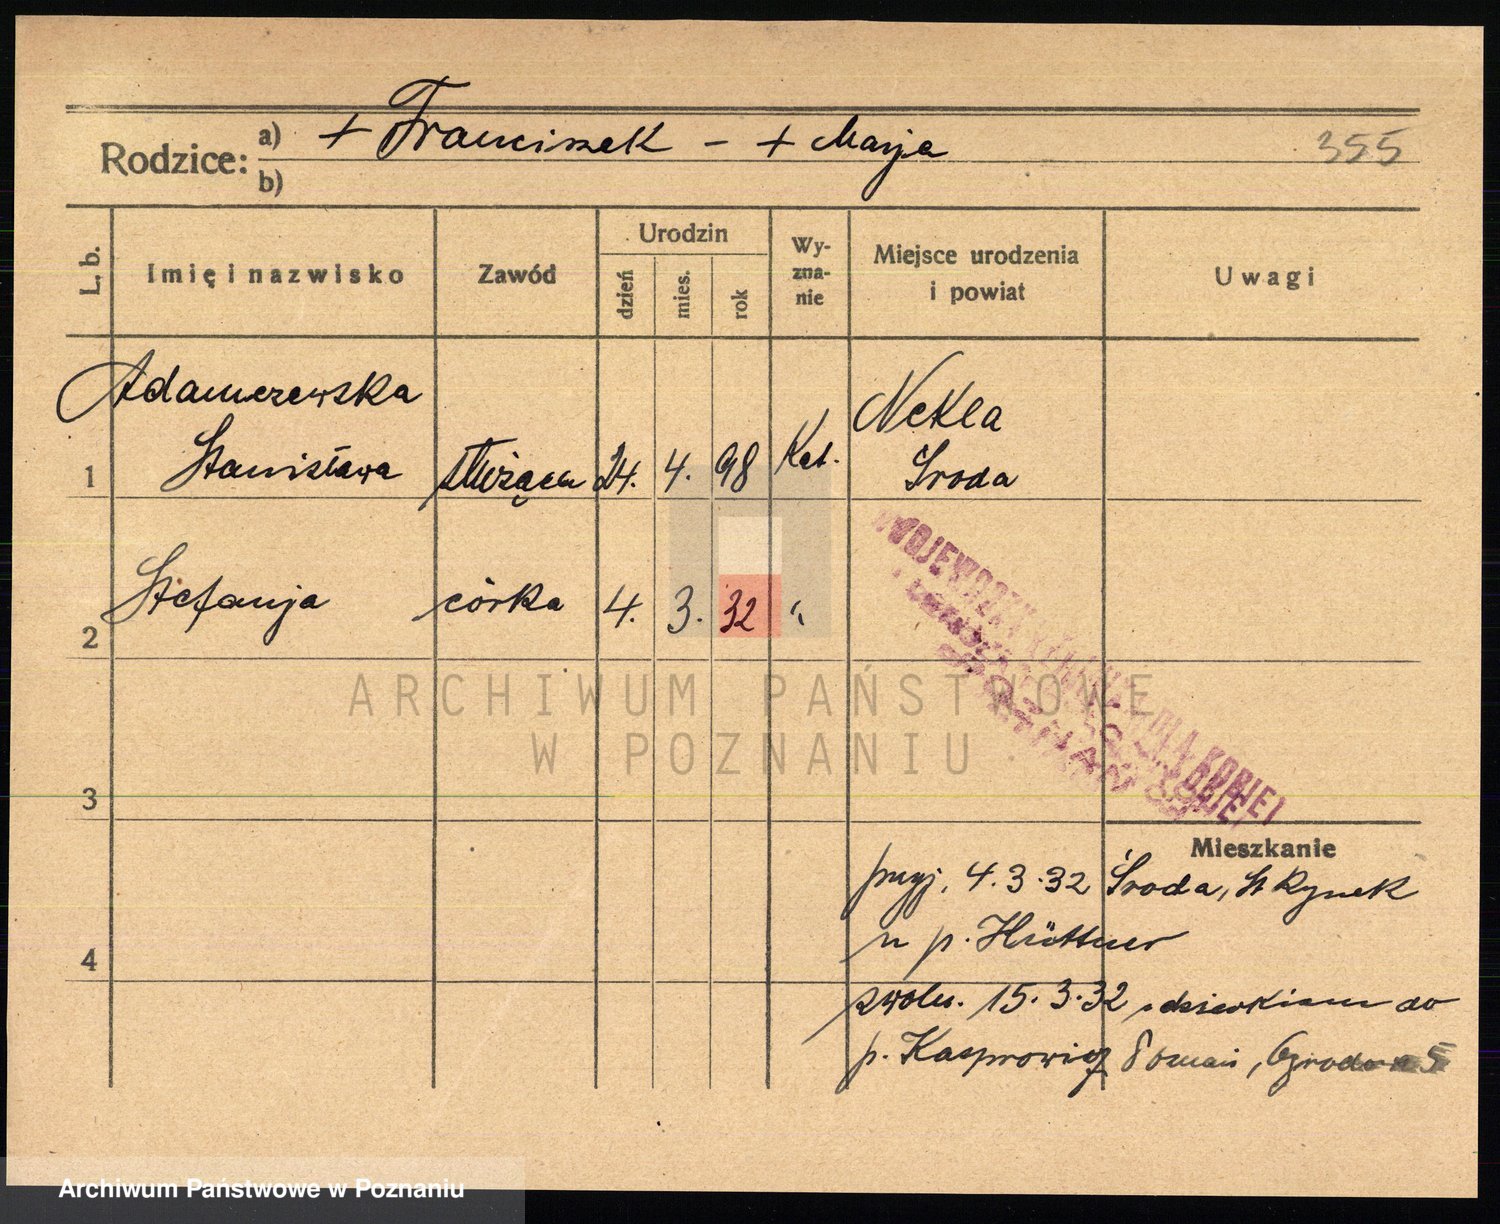 Rodzice: a) + Franciszek - + Marja
b)
355
L. b.
Imię i nazwisko
Zawód
Urodzin
dzień
mies.
rok
Wy-
zna-
nie
Miejsce urodzenia
i powiat
Uwagi
Adamczewska
1 Stanisława służąca 24. 4. 98 Kat. Nekla
Środa
2 Stefanja córka 4. 3. 32 "
WOJEWÓDZKA KLINIKA DLA KOBIET
POZNAŃ
ARCHIWUM PAŃSTWOWE
W POZNANIU
3
Mieszkanie
przyj. 4.3.32 Środa, St Rynek
4
u p. Hüttner
zwoln. 15.3.32 z dzieckiem do
p. Kasprowicz Poznań, Ogrodowa 5
Archiwum Państwowe w Poznaniu